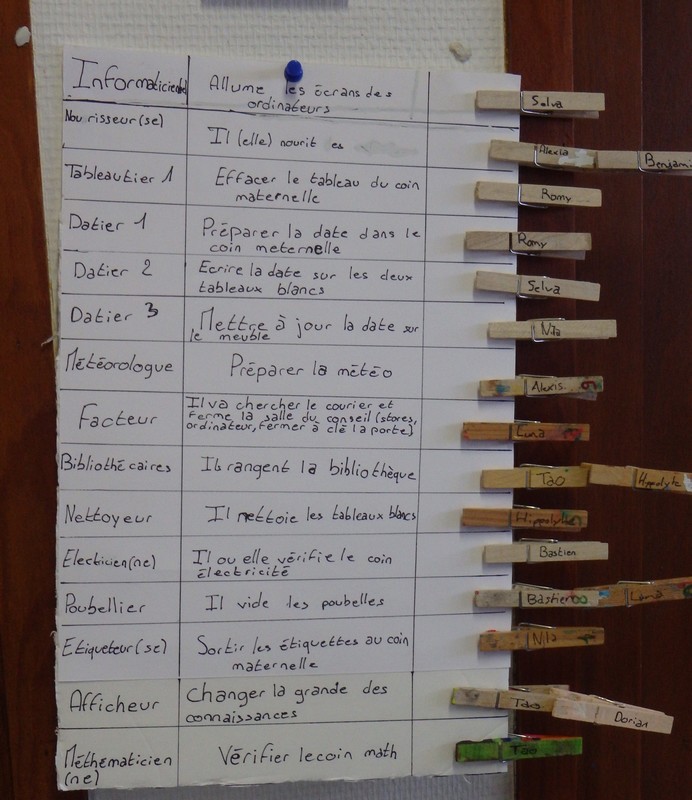 Informaticien(ne)
Allume les écrans des
ordinateurs
Selva
Nourrisseur(se)
Il (elle) nourit es
Alexia
Benjami
Tableautier 1
Effacer le tableau du coin
maternelle
Romy
Datier 1
Préparer la date dans le
coin meternelle
Romy
Datier 2
Ecrire la date sur les deux
tableaux blancs
Selva
Datier 3
Mettre à jour la date sur
le meuble
Nila
Météorologue
Préparer la météo
Alexis
Facteur
Il va chercher le courier et
ferme la salle du conseil (stores,
ordinateur, fermer à clé la porte)
Luna
Bibliothécaires
Ils rangent la bibliothèque
Tao
Hippolyte
Nettoyeur
Il nettoie les tableaux blancs
Hippolyte
Electicien(ne)
Il ou elle vérifie le coin
électricité
Bastien
Poubellier
Il vide les poubelles
Bastien
Luna
Etiqueteur(se)
Sortir les étiquettes au coin
maternelle
Nila
Afficheur
Changer la grande des
connaissances
Dorian
Méthématicien
(ne)
Vérifier le coin math
Tao